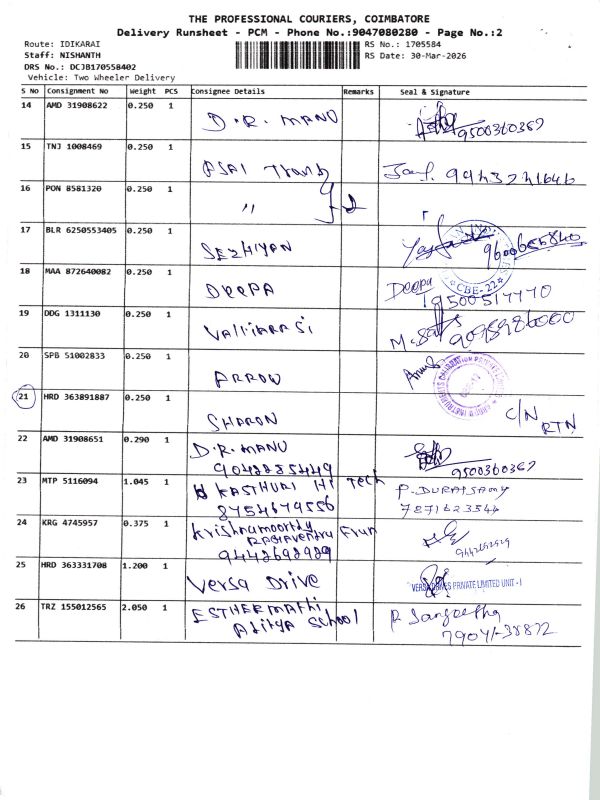 THE PROFESSIONAL COURIERS, COIMBATORE
Delivery Runsheet - PCM - Phone No.:9047080280 - Page No.:2
Route: IDIKARAI RS No.: 1705584
Staff: NISHANTH RS Date: 30-Mar-2026
DRS No.: DCJB170558402
Vehicle: Two Wheeler Delivery
S No Consignment No Weight PCS Consignee Details Remarks Seal & Signature
14 AMD 31908622 0.250 1
D.R. MANU 9500360367
15 TNJ 1008469 0.250 1
PSAI Trans
16 PON 8581320 0.250 1
" } 2
17 BLR 6250553405 0.250 1
SEZHIYAN
CBE-22
18 MAA 872640082 0.250 1
DEEPA Deepa
9500517770
19 DDG 1311130 0.250 1
Valliarasi
20 SPB 51002833 0.250 1
ARROW
21 HRD 363891887 0.250 1
SHARON C/N
RTN
22 AMD 31908651 0.290 1
D.R. MANU
9042235449 9500360367
23 MTP 5116094 1.045 1
KASTHURI Hi Tech P. DURAISAMY
8754679556 7871623544
24 KRG 4745957 0.375 1
Krishnamoorthy
9442692929 9442692929
25 HRD 363331708 1.200 1
Versa Drive VERSA DRIVES PRIVATE LIMITED UNIT - I
26 TRZ 155012565 2.050 1
ESTHER MATHI R Sangeetha
Aditya School